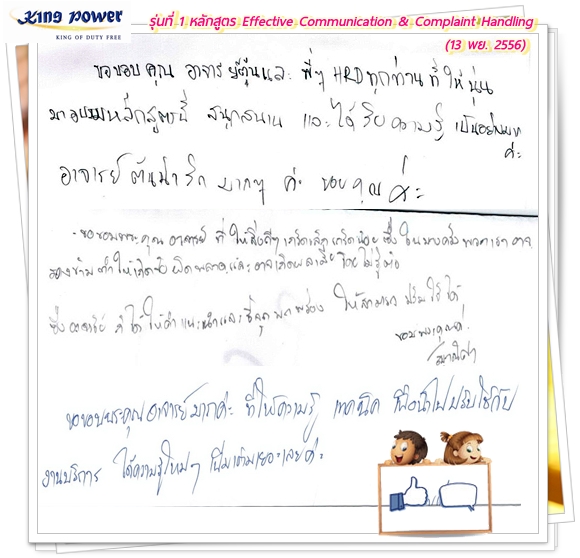 King Power
KING OF DUTY FREE
รุ่นที่ 1 หลักสูตร Effective Communication & Complaint Handling
(13 พย. 2556)
ขอขอบคุณ อาจารย์ตุ้มและ พี่ๆ HRD ทุกท่าน ที่ให้
มาอบรมหลักสูตรนี้ สนุกสนาน และได้รับความรู้ เป็นอย่างมาก
ค่ะ
อาจารย์ น่ารัก มากๆ ค่ะ ขอบคุณค่ะ
- ขอขอบพระคุณ อาจารย์ ที่ ให้สิ่งดีๆ เกร็ดเล็ก เกร็ดน้อย ซึ่ง ในบางครั้ง พวกเรา อาจ
มองข้าม ทำให้เกิดข้อ ผิดพลาด และ อาจเกิดผลเสีย โดยไม่รู้ตัว
ซึ่ง อาจารย์ ก็ได้ ให้คำแนะนำและชี้จุดบกพร่อง ให้สามารถ ปรับใช้ได้
ขอบพระคุณค่ะ
ขอขอบพระคุณอาจารย์มากค่ะ ที่ให้ความรู้ เทคนิค เพื่อนำไปปรับใช้กับ
งานบริการ ได้ความรู้ใหม่ๆ เพิ่มเติมเยอะเลยค่ะ